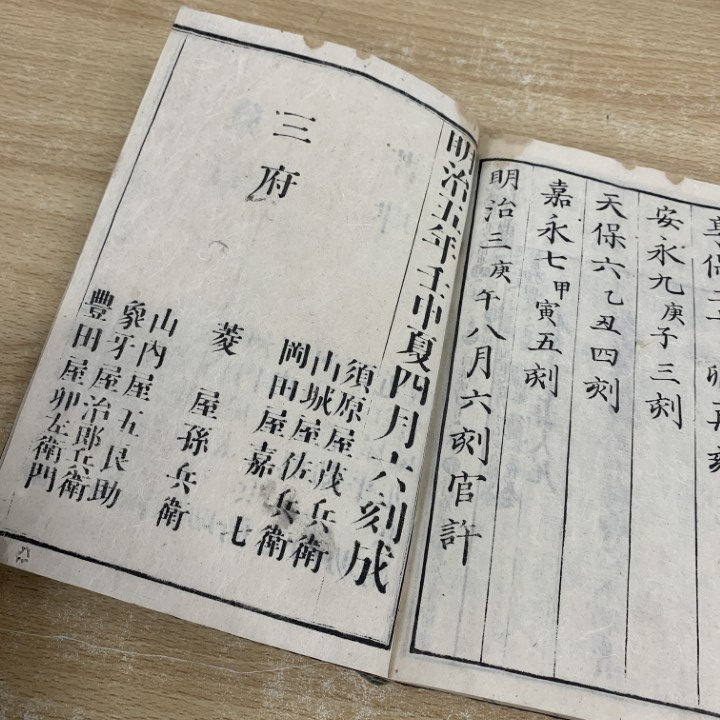 安永九庚子三刻
天保六乙丑四刻
嘉永七甲寅五刻
明治三庚午八月六刻官許
明治五年壬申夏四月六刻成
三府
須原屋茂兵衛
山城屋佐兵衛
岡田屋嘉七
菱屋孫兵衛
山内屋五良助
象牙屋治郎兵衛
豐田屋卯左衛門